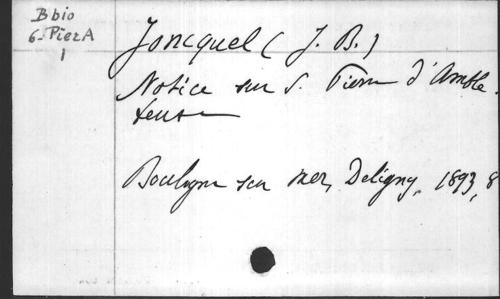 B bio
6. PierA
1
Joncquel (J. B.)
Notice sur S. Pierre d'Amble-
teuse
Boulogne sur mer, Deligny, 1893, 8